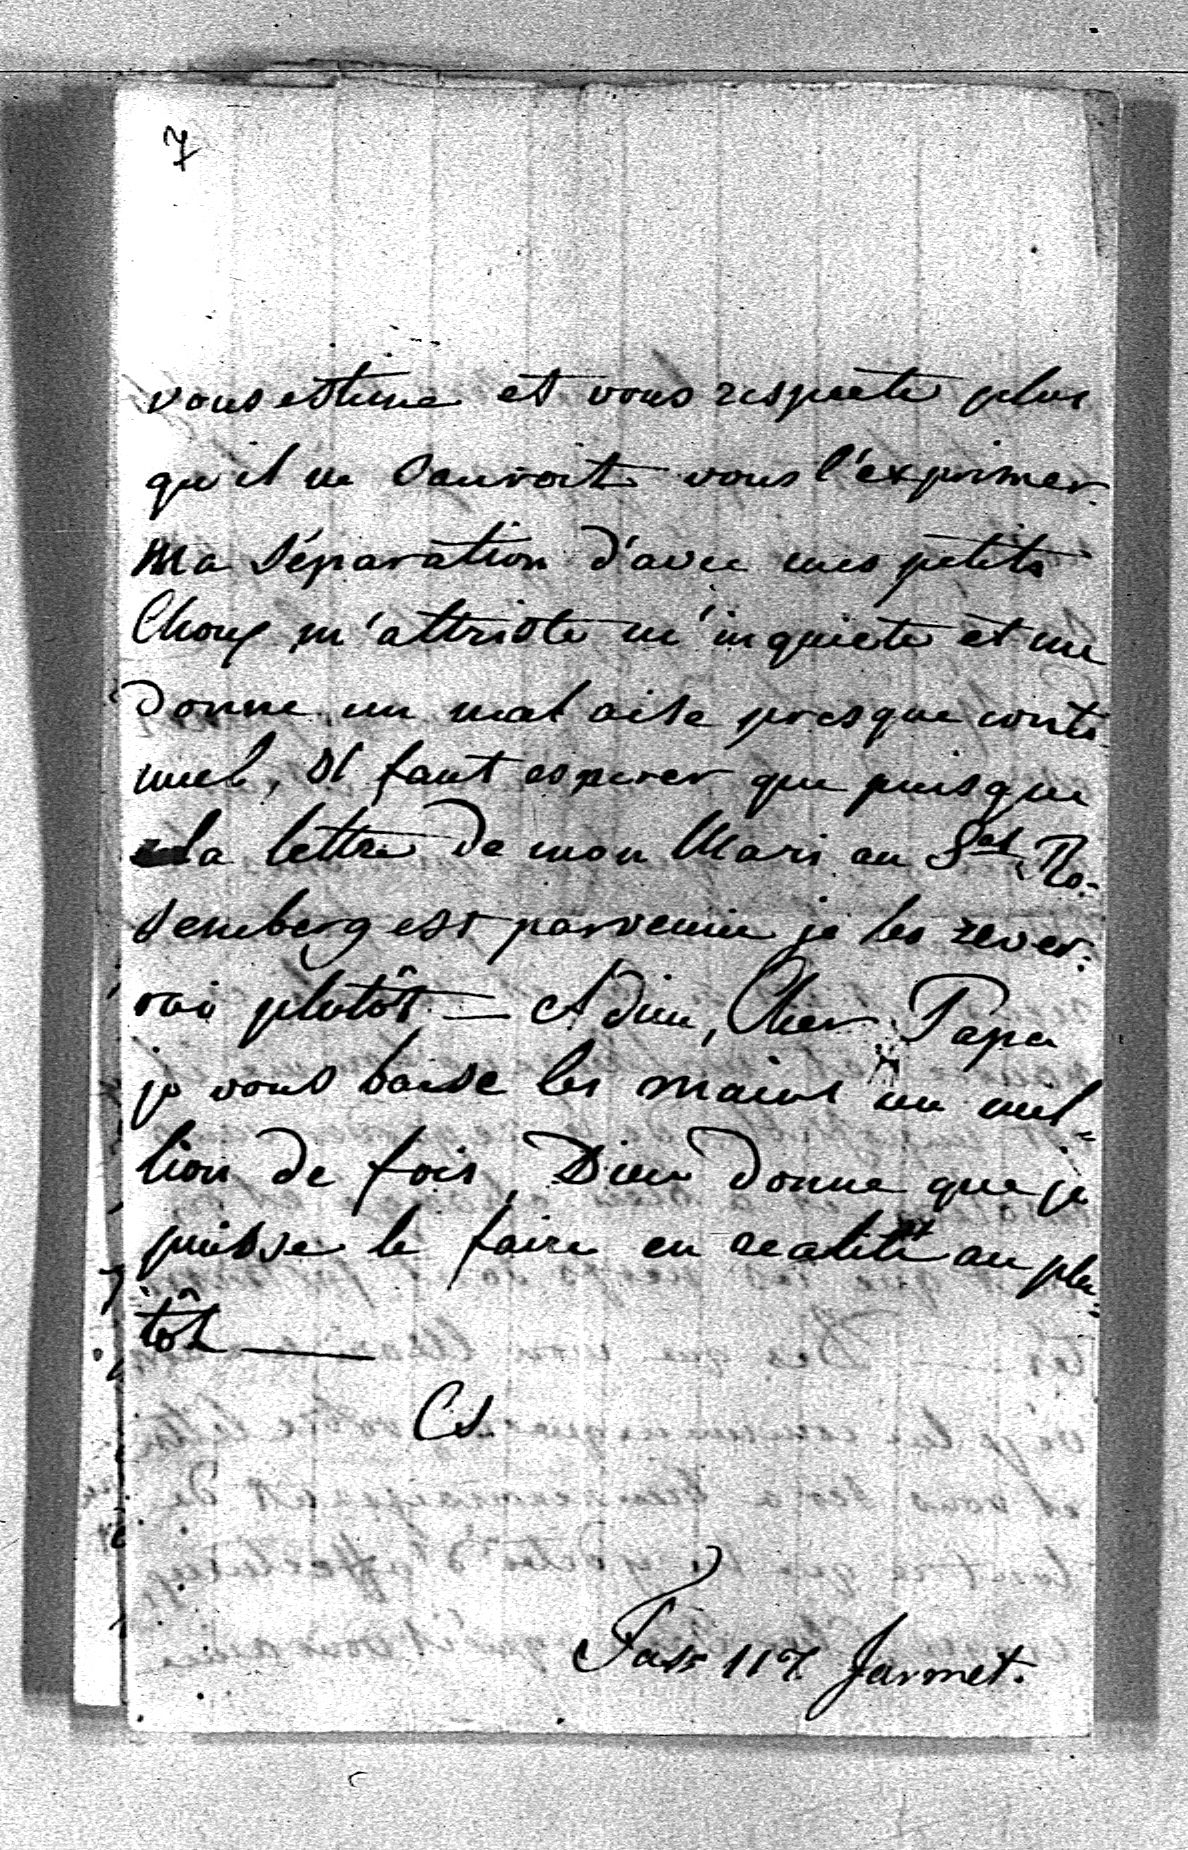 7
vous estime et vous respecte plus
qu'il ne sauroit vous l'exprimer.
Ma séparation d'avec mes petits
Choux m'attriste m'inquiete et me
donne un mal aise presque conti-
nuel, Il faut esperer que puisque
la lettre de mon Mari au Gal Ro-
semberg est parvenue je les rever-
rai plutôt — Adieu, Cher Papa
je vous baise les mains un mil-
lion de fois, Dieu donne que je
puisse le faire en realité au plu-
tôt —
Cs.
Fasz 117. Jarmet.